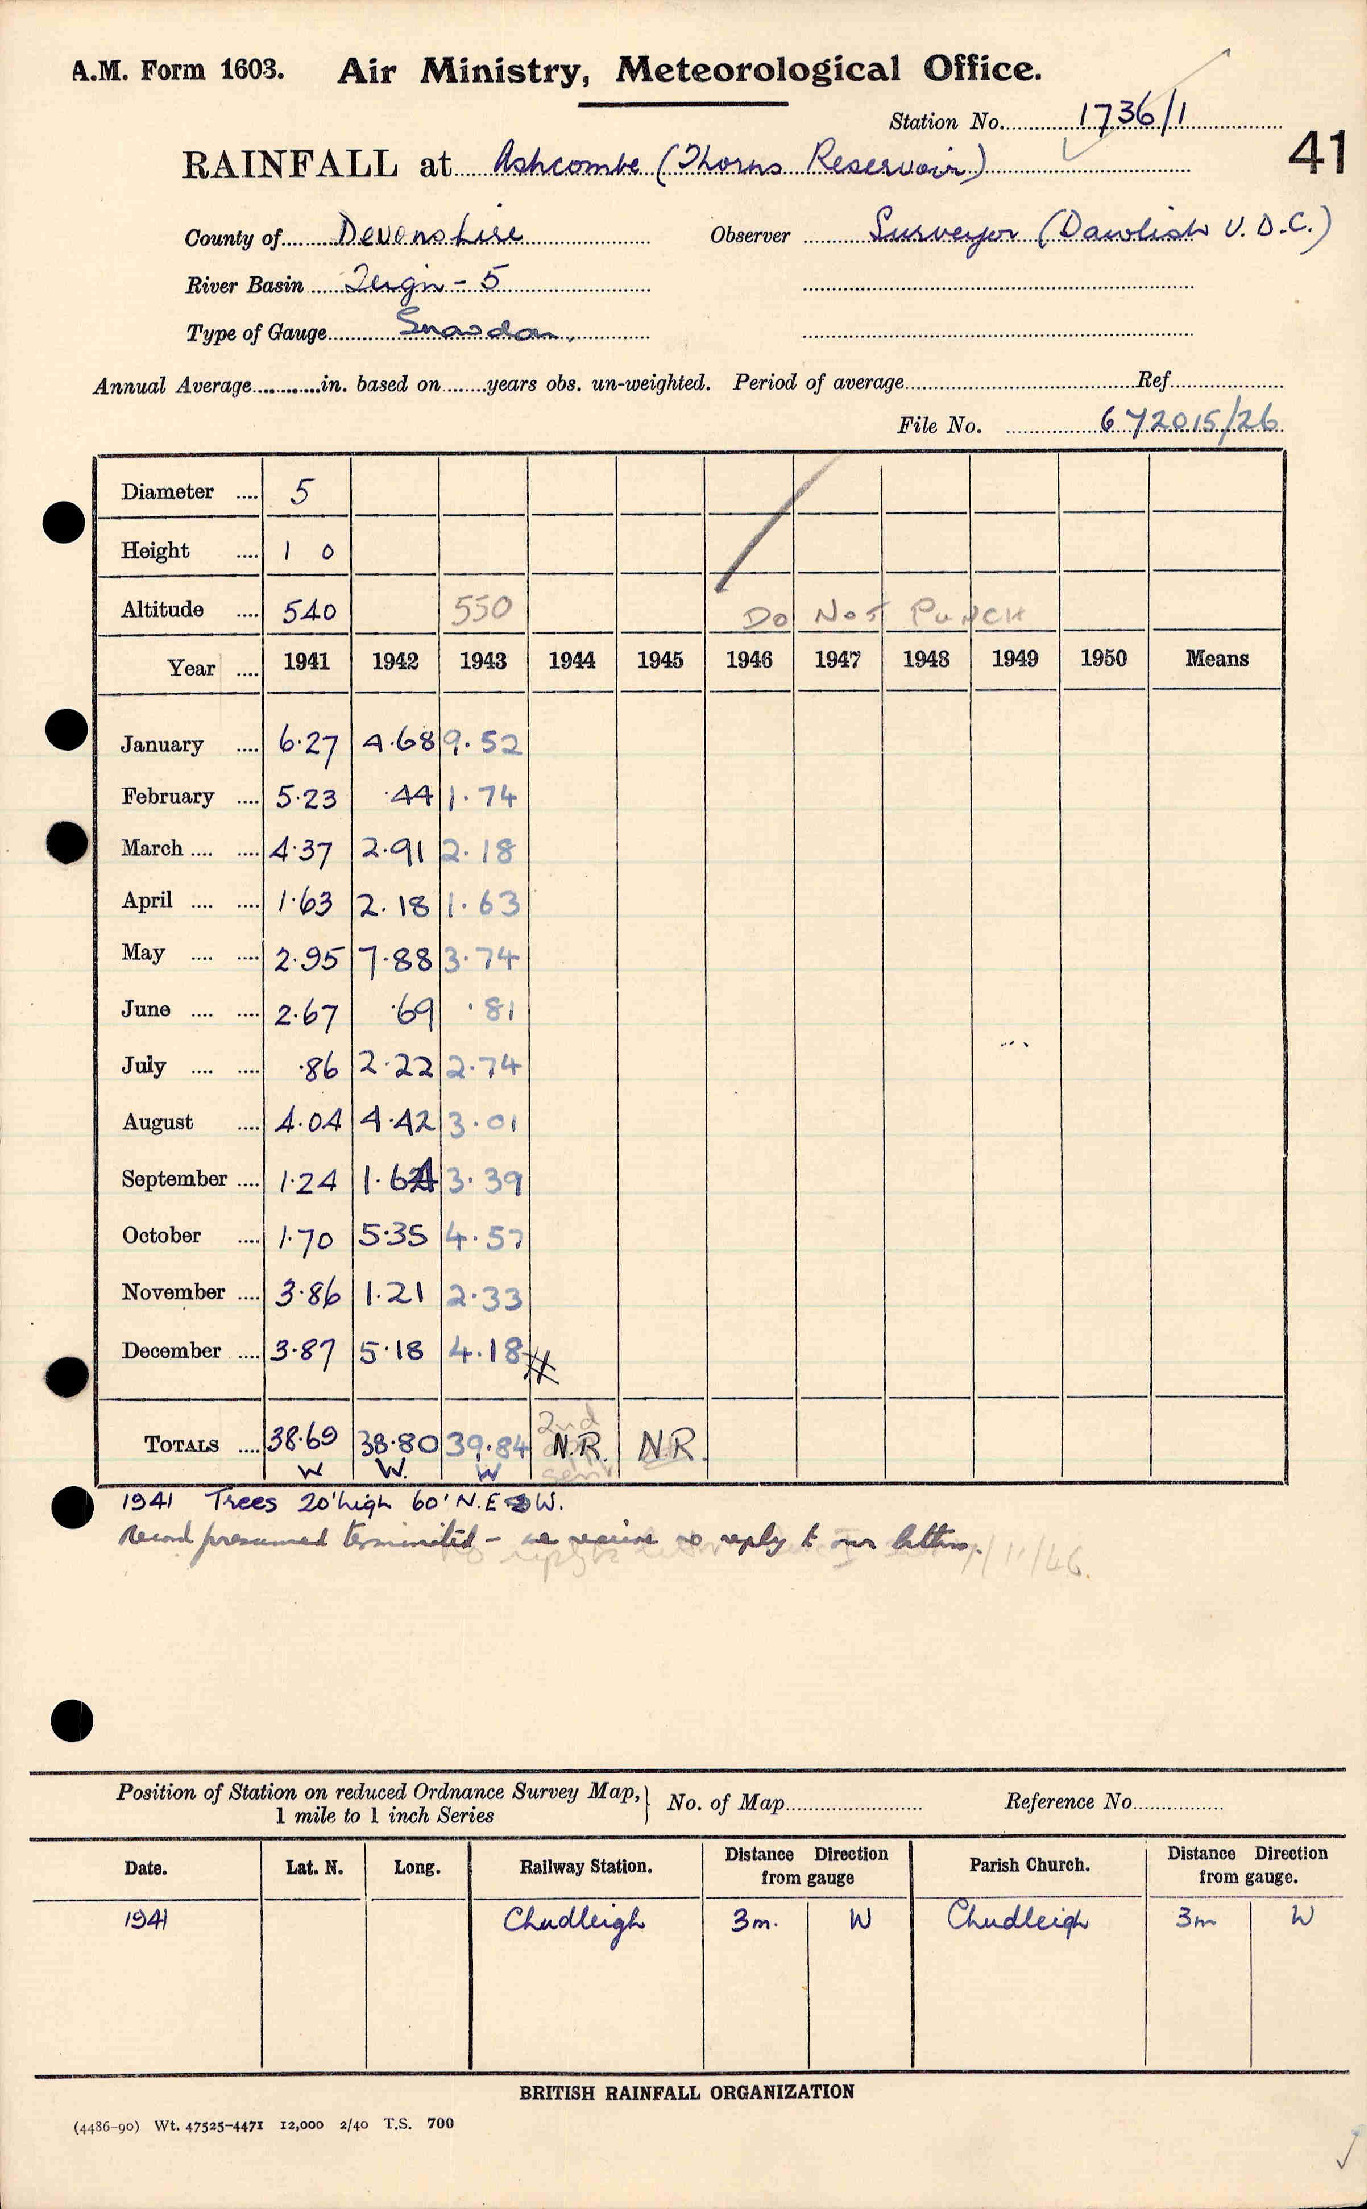 A.M. Form 1603. Air Ministry, Meteorological Office.
Station No. 1736/1
41
RAINFALL at Ashcombe (Thorns Reservoir)
County of Devonshire Observer Surveyor (Dawlish U.D.C.)
River Basin Teign - 5
Type of Gauge Snowdon.
Annual Average in. based on years obs. un-weighted. Period of average Ref
File No. 672015/26
Diameter .... 5
Height .... 1 0
Altitude .... 540 550 Do Not Punch
Year .... 1941 1942 1943 1944 1945 1946 1947 1948 1949 1950 Means
January .... 6.27 4.68 9.52
February .... 5.23 .44 1.74
March .... .... 4.37 2.91 2.18
April .... .... 1.63 2.18 1.63
May .... .... 2.95 7.88 3.74
June .... .... 2.67 .69 .81
July .... .... .86 2.22 2.74
August .... 4.04 4.42 3.01
September .... 1.24 1.64 3.39
October .... 1.70 5.35 4.57
November .... 3.86 1.21 2.33
December .... 3.87 5.18 4.18 #
TOTALS .... 38.69 38.80 39.84 2nd N.R. sent N.R.
W W. W
1941 Trees 20' high 60' N.E & W.
Record presumed terminated - we receive no reply to our letters.
1/11/46.
Position of Station on reduced Ordnance Survey Map, 1 mile to 1 inch Series No. of Map Reference No.
Date. Lat. N. Long. Railway Station. Distance Direction from gauge Parish Church. Distance Direction from gauge.
1941 Chudleigh 3m. W Chudleigh 3m W
BRITISH RAINFALL ORGANIZATION
(4486-90) Wt. 47525-4471 12,000 2/40 T.S. 700